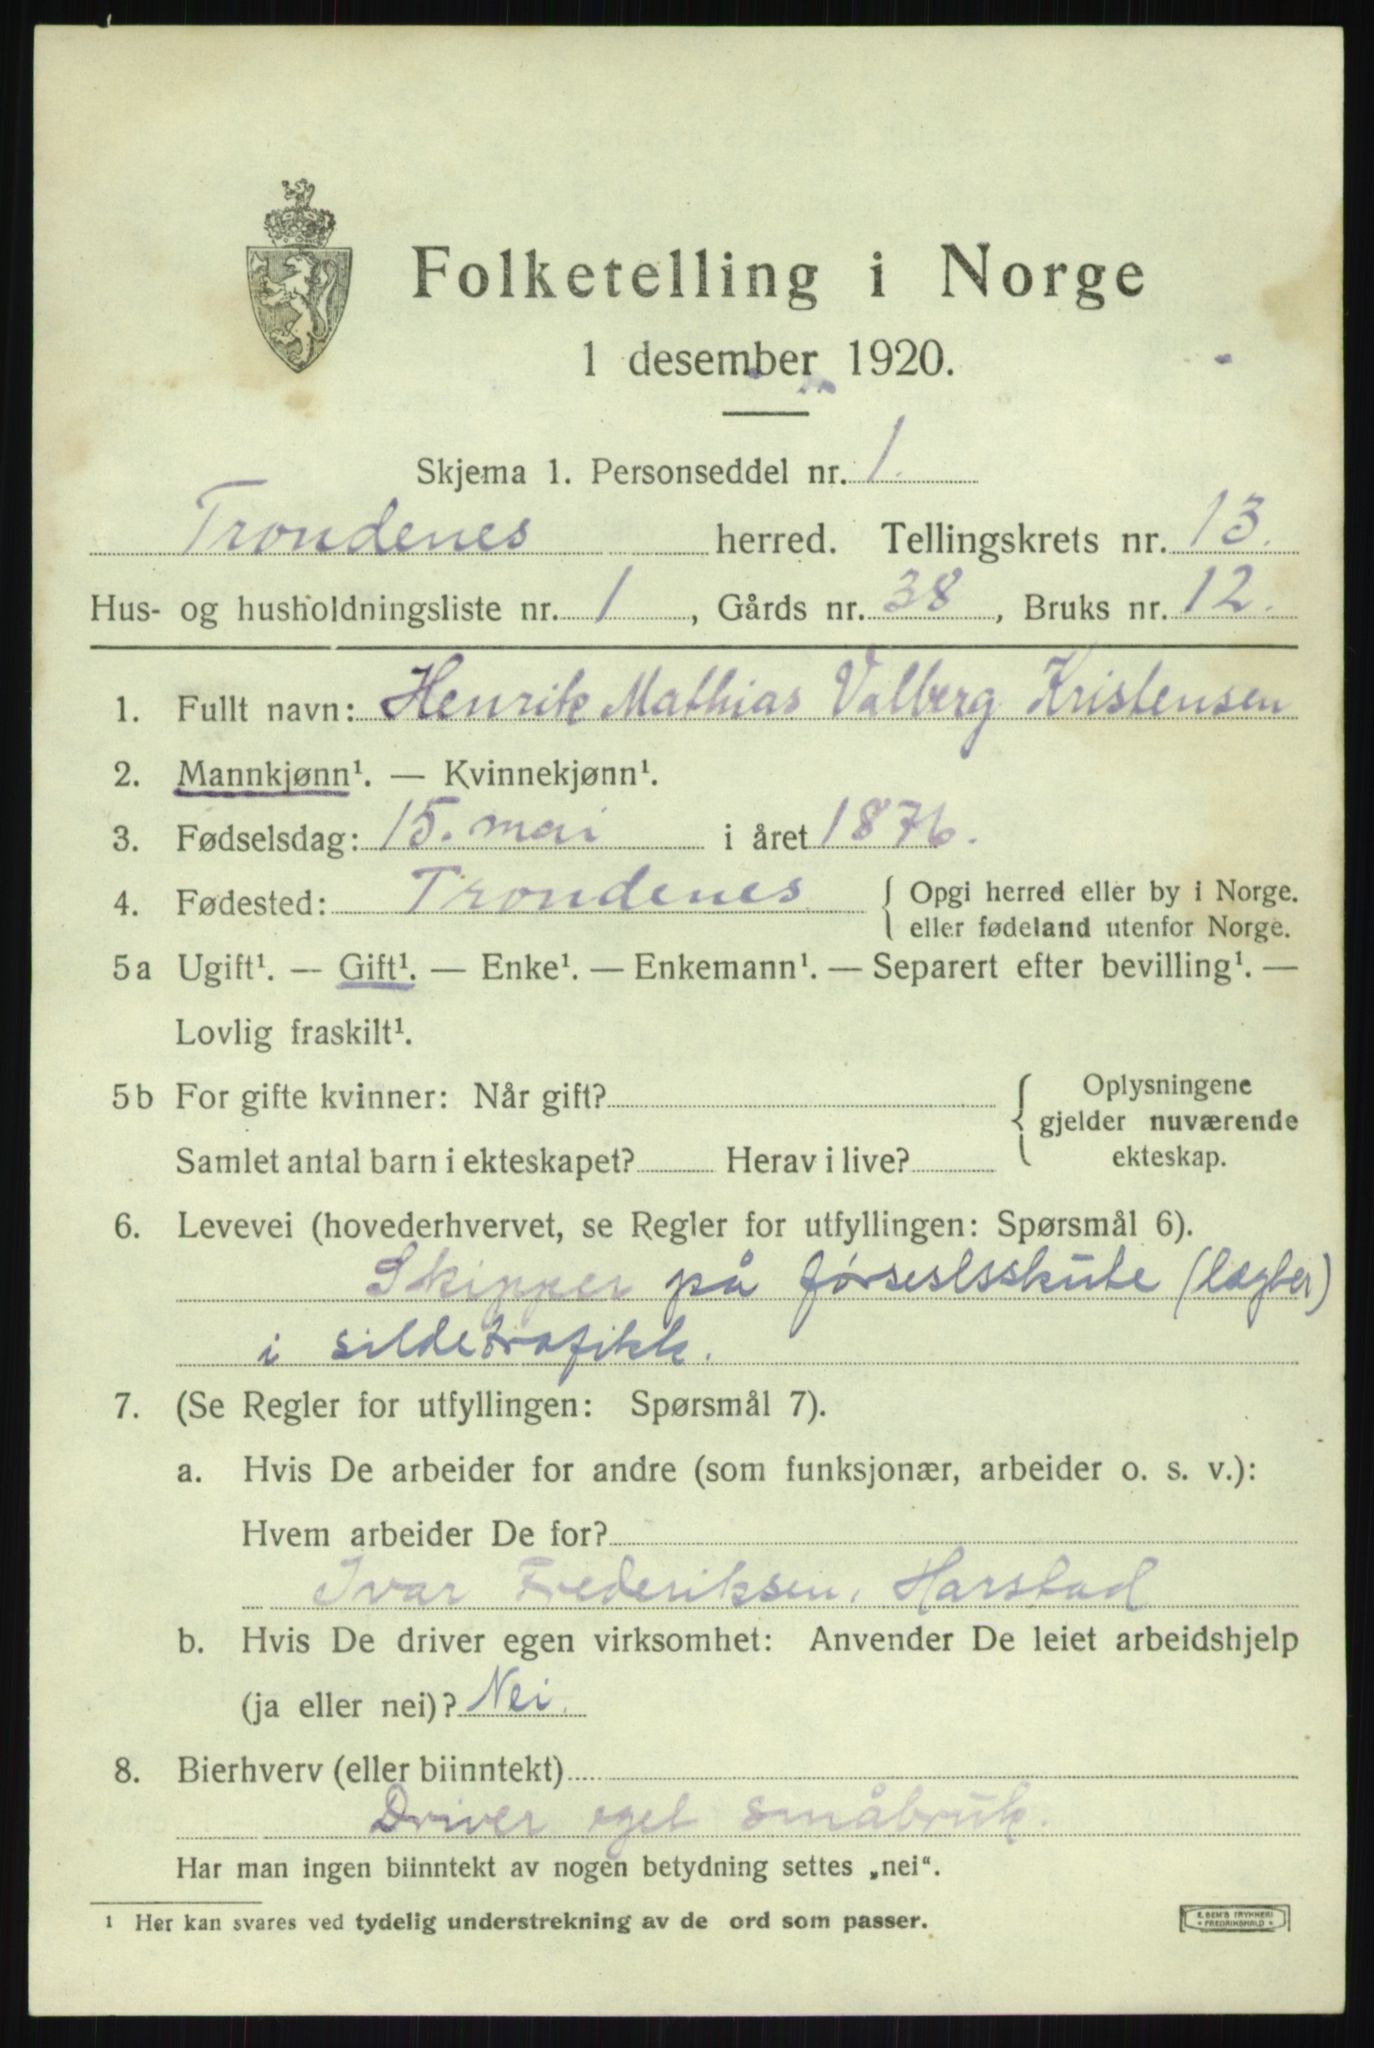 Folketelling i Norge
1 desember 1920.
Skjema 1. Personseddel nr. 1.
Trondenes herred. Tellingskrets nr. 13.
Hus- og husholdningsliste nr. 1, Gårds nr. 38, Bruks nr. 12.
1. Fullt navn: Henrik Mathias Valberg Kristensen
2. Mannkjønn¹. — Kvinnekjønn¹.
3. Fødselsdag: 15. mai i året 1876.
4. Fødested: Trondenes { Opgi herred eller by i Norge.
eller fødeland utenfor Norge.
5a Ugift¹. — Gift¹. — Enke¹. — Enkemann¹. — Separert efter bevilling¹. —
Lovlig fraskilt¹.
5b For gifte kvinner: Når gift? { Oplysningene
gjelder nuværende
Samlet antal barn i ekteskapet? Herav i live? ekteskap.
6. Levevei (hovederhvervet, se Regler for utfyllingen: Spørsmål 6).
Skipper på førseslsskute (lægter)
i sildetrafikk.
7. (Se Regler for utfyllingen: Spørsmål 7).
a. Hvis De arbeider for andre (som funksjonær, arbeider o. s. v.):
Hvem arbeider De for?
Ivar Frederiksen, Harstad
b. Hvis De driver egen virksomhet: Anvender De leiet arbeidshjelp
(ja eller nei)? Nei.
8. Bierhverv (eller biinntekt)
Driver eget småbruk.
Har man ingen biinntekt av nogen betydning settes „nei“.
¹ Her kan svares ved tydelig understrekning av de ord som passer.
E. SEM'S TRYKKERI
FREDRIKSHALD